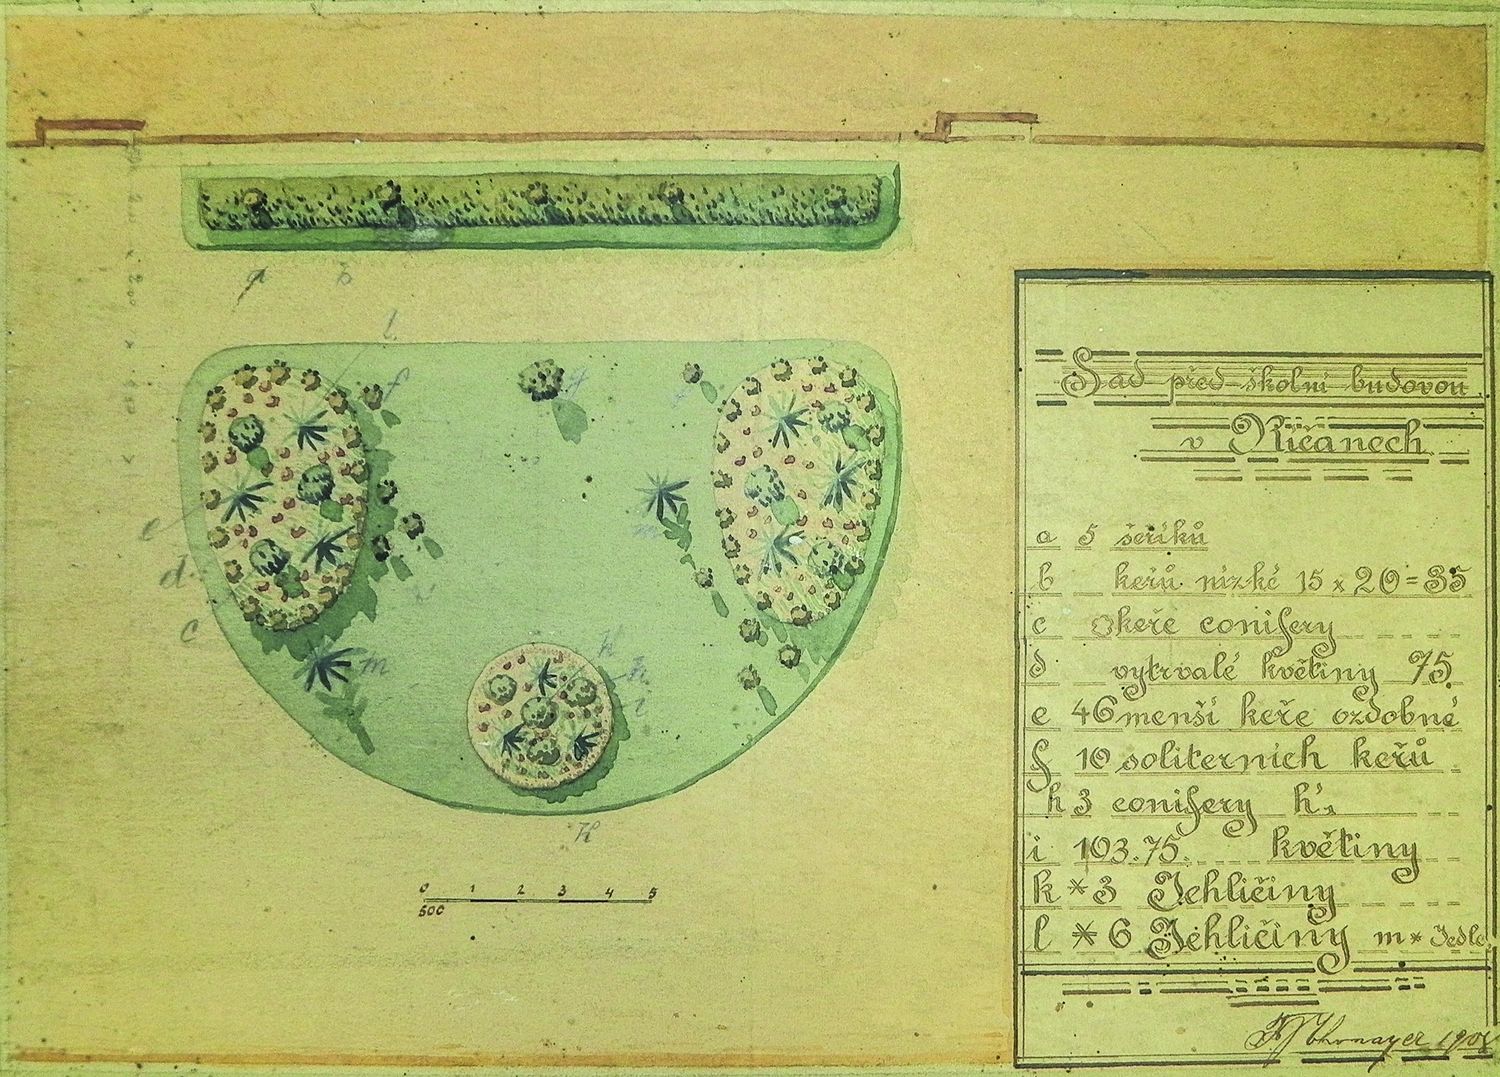 a
b
l
f
g
e
d
c
m
m
h
k
i
H
0 1 2 3 4 5
500
Sad před školní budovou
v Říčanech
a 5 šeříků
b keřů nízké 15 x 20 = 35
c keře conifery
d vytrvalé květiny 75
e 46 menší keře ozdobné
f 10 soliterních keřů
h 3 conifery h's
i 103.75. květiny
k * 3 Jehličiny
l * 6 Jehličiny m * Jedle
Thomayer